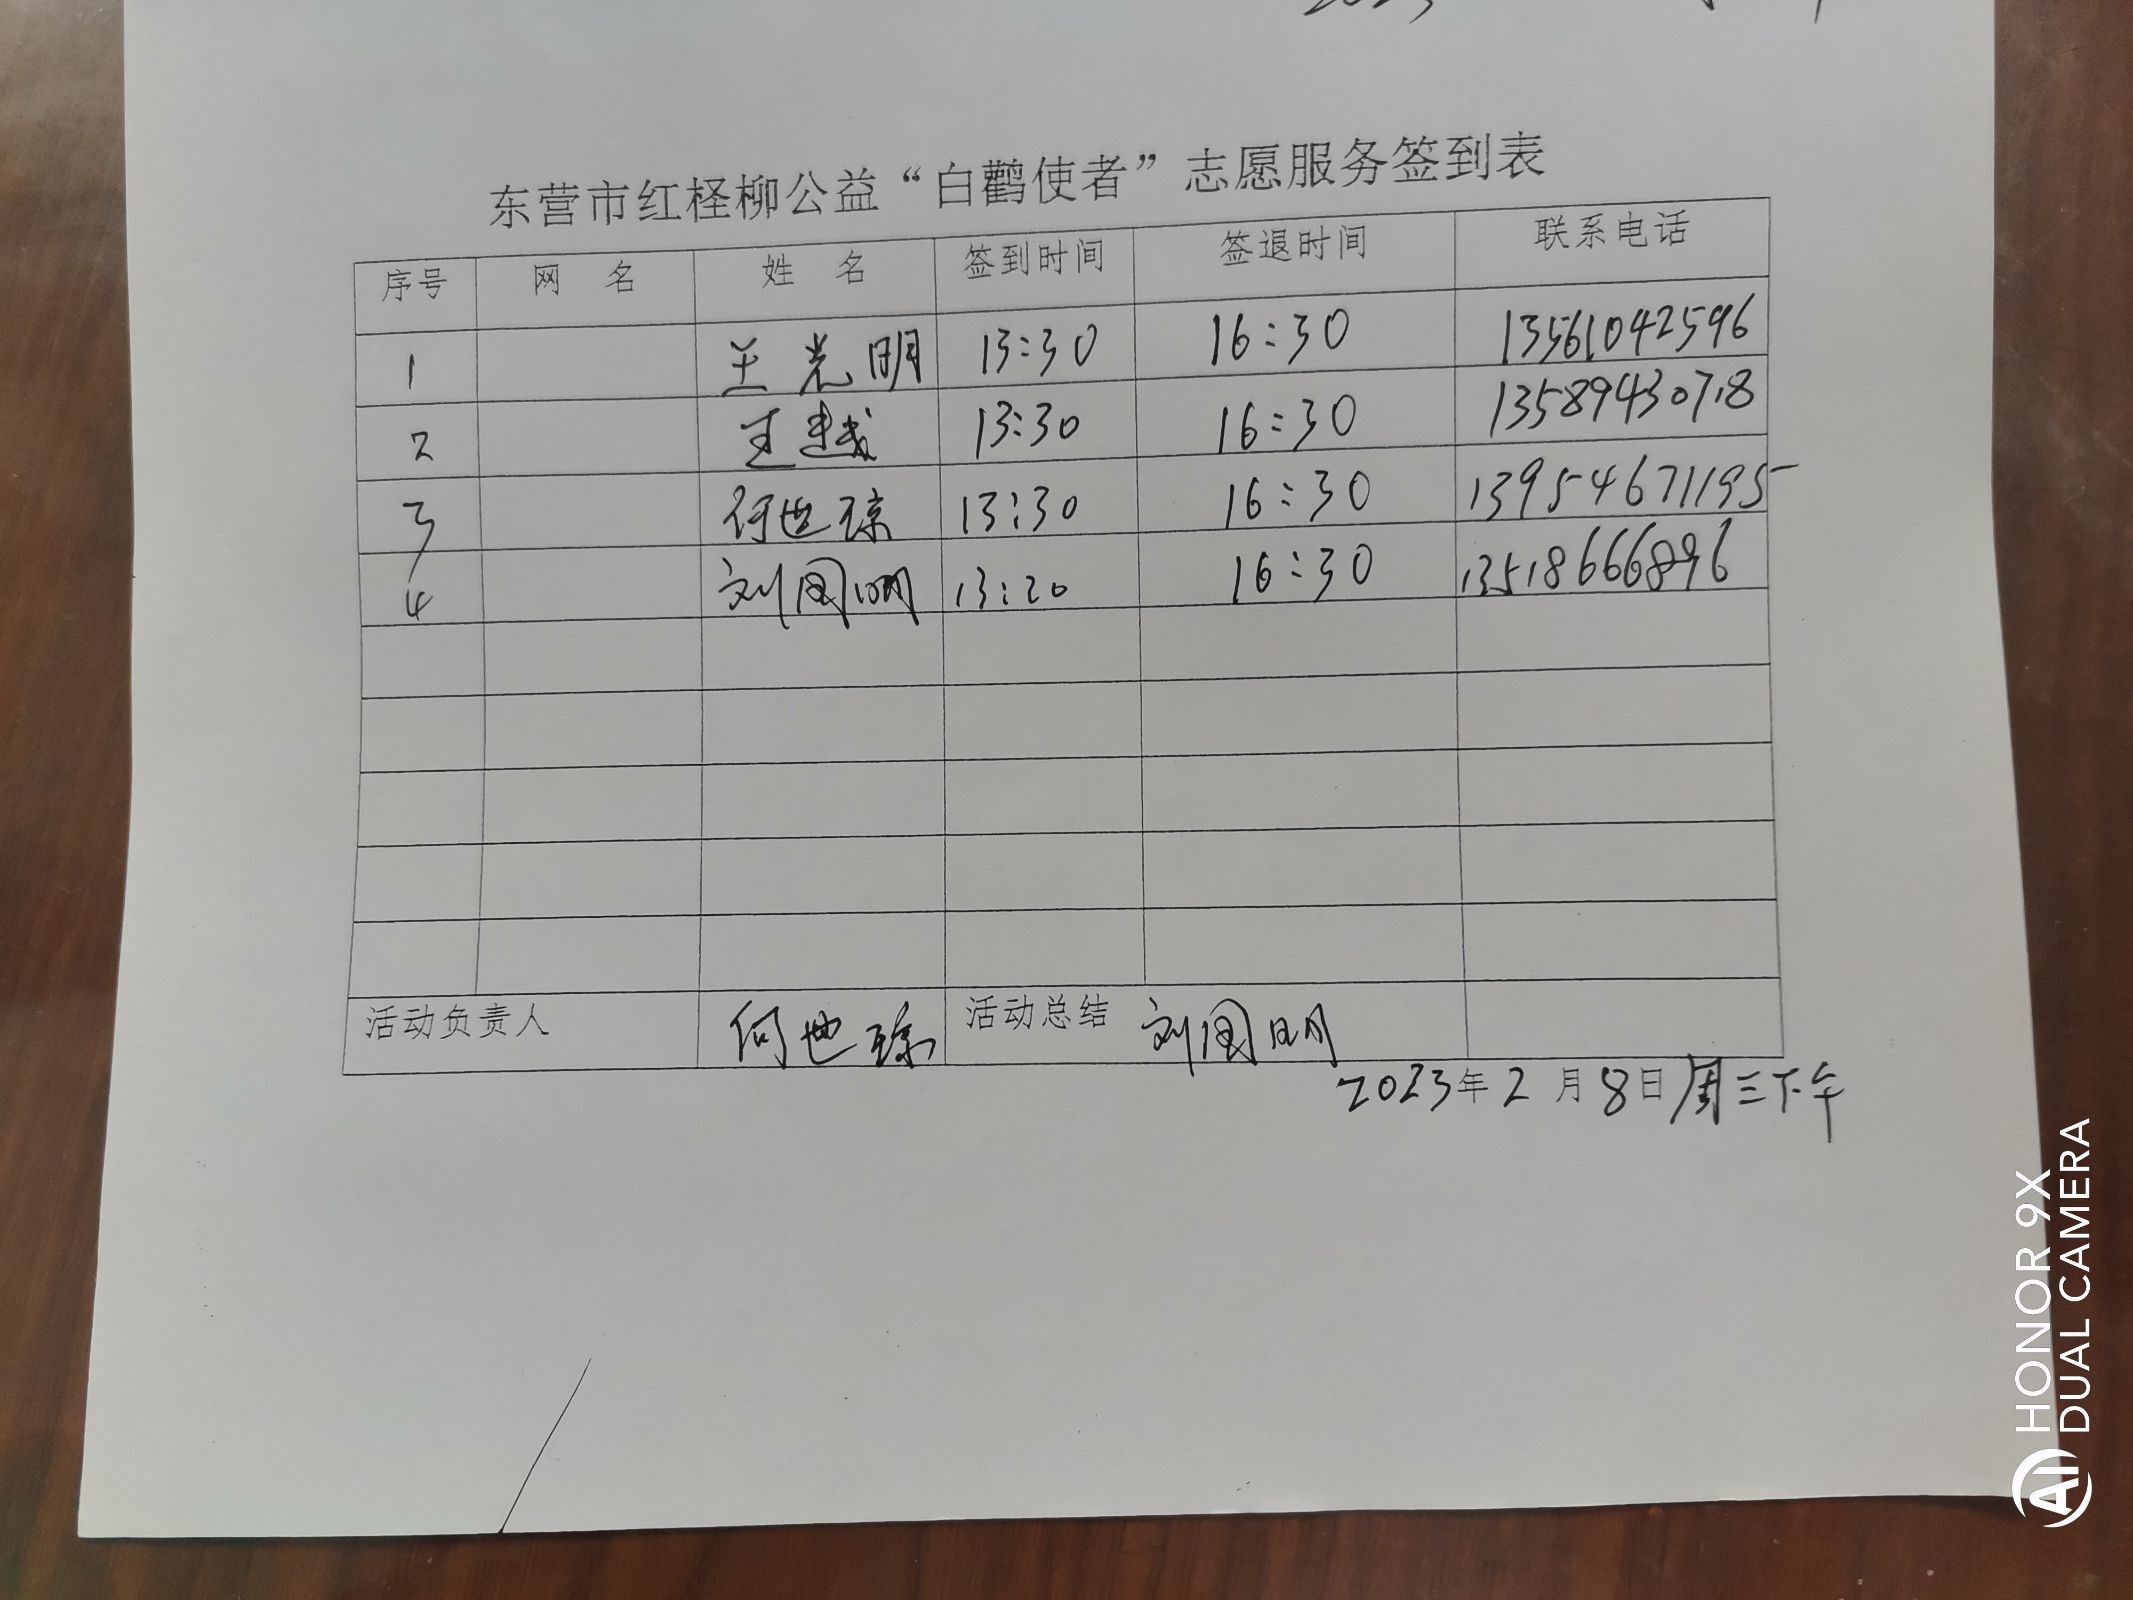 东营市红柽柳公益“白鹳使者”志愿服务签到表
序号 网 名 姓 名 签到时间 签退时间 联系电话
1 王光明 13:30 16:30 13561042596
2 王越 13:30 16:30 13589430718
3 何世琼 13:30 16:30 13954671195
4 刘国明 13:20 16:30 13518666896
活动负责人 何世琼 活动总结 刘国明
2023年2月8日周三下午
HONOR 9X
DUAL CAMERA
AI